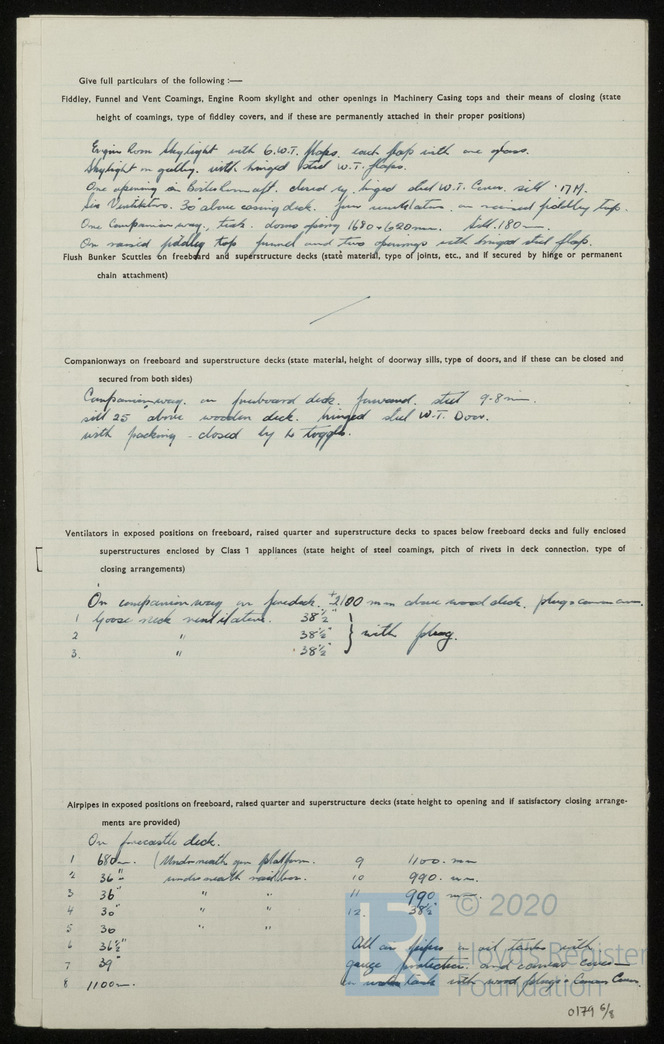 Give full particulars of the following :—
Fiddley, Funnel and Vent Coamings, Engine Room skylight and other openings in Machinery Casing tops and their means of closing (state
height of coamings, type of fiddley covers, and if these are permanently attached in their proper positions)
Engine Room Skylight with 6 W.T. flaps, each flap with one glass.
Skylight on galley. with hinged steel W.T. flaps.
One opening in Boilerroom aft. closed by hinged steel W.T. Cover. sill
Six Ventilators. 30" above casing deck. Four ventilators on raised fiddley top.
One Companionway, teak. doors opening 1680 × 620 mm. Sill. 180 mm.
On raised fiddley top funnel and two openings with hinged steel flap.
Flush Bunker Scuttles on freeboard and superstructure decks (state material, type of joints, etc., and if secured by hinge or permanent
chain attachment)
Companionways on freeboard and superstructure decks (state material, height of doorway sills, type of doors, and if these can be closed and
secured from both sides)
Companionway. on freeboard deck. forward. steel 9-8 mm.
sill 25" above wooden deck. hinged steel W.T. Door.
with packing - closed by 4 toggles.
Ventilators in exposed positions on freeboard, raised quarter and superstructure decks to spaces below freeboard decks and fully enclosed
superstructures enclosed by Class 1 appliances (state height of steel coamings, pitch of rivets in deck connection, type of
closing arrangements)
On companionway on foredeck. 2100 mm above wood deck.
1 Goose neck ventilators. 38½"
2 " 38½" } with plug.
3. " 38½"
Airpipes in exposed positions on freeboard, raised quarter and superstructure decks (state height to opening and if satisfactory closing arrange-
ments are provided)
On forecastle deck.
1 680 mm. (Underneath gun platform. 9 1100. mm
2 36" underneath 10 990. mm.
3 36" " " 11 990 mm.
4 30" " " 12. 38½"
5 30 " "
6 36½" All air pipes on oil tanks with
7 39" gauze protection. and canvas cover
8 1100 mm. on water tank with wood plugs + Canvas Cover.
© 2020
Lloyd's Register
Foundation
0179 6/8